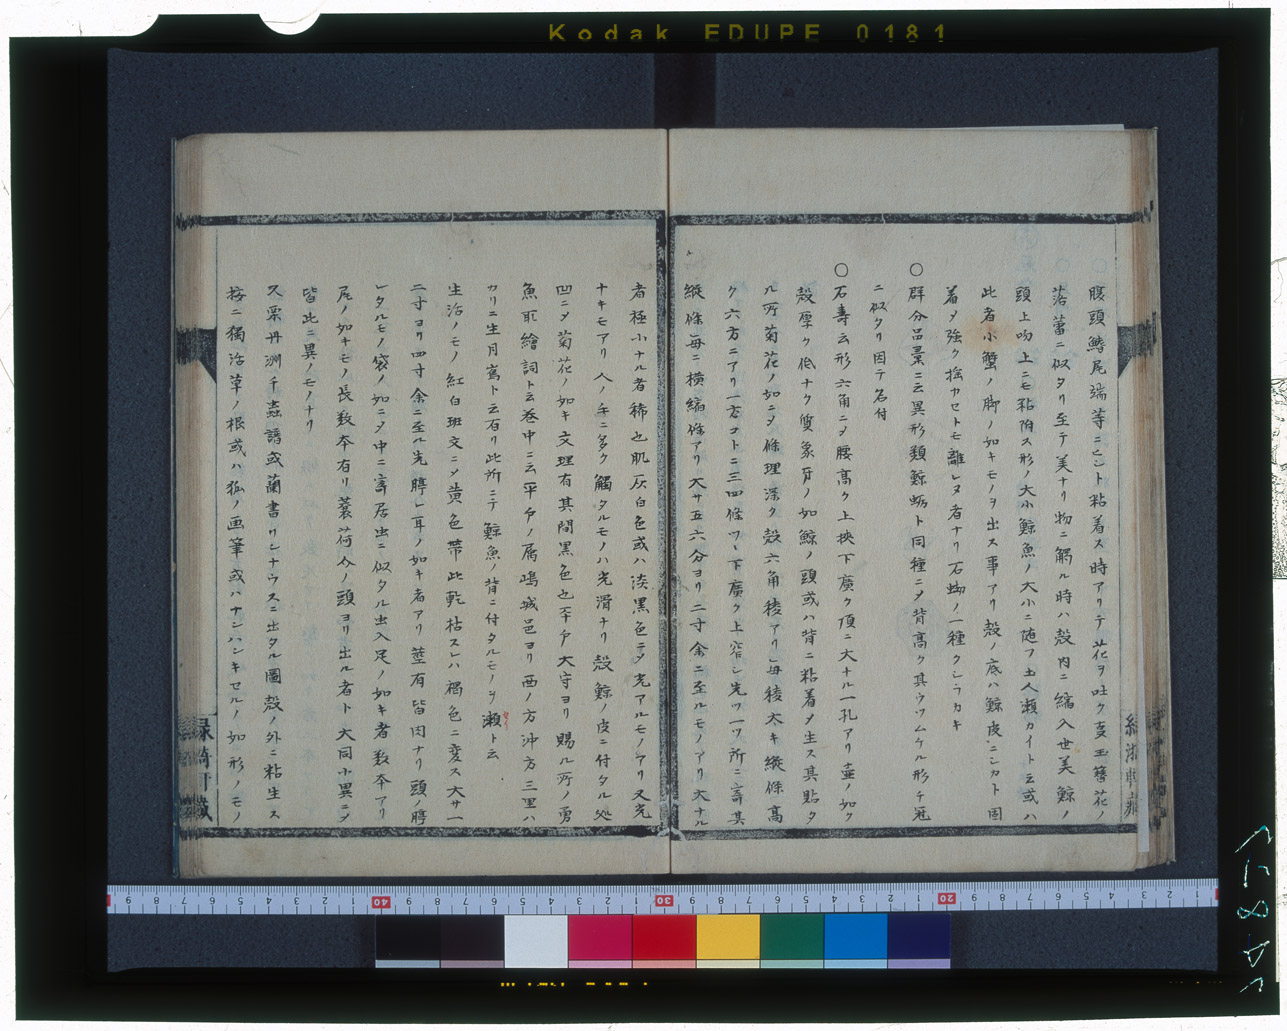 Kodak EDUPE 0181
腹頭鰭尾端等ニヒント粘着ス時アリテ花ヲ吐ク亥玉簪花ノ
落蕾ニ似タリ至テ美ナリ物ニ觸ル時ハ殻内ニ縮入世美鯨ノ
頭上吻上ニモ粘附ス形ノ大小鯨魚ノ大小ニ随フ土人瀬カイト云或ハ
此者小蟹ノ脚ノ如キモノヲ出ス事アリ殻ノ底ハ鯨皮ニシカト固
着メ強ク捻カセトモ離レヌ者ナリ石蜐ノ一種クシラカキ
〇群分品彙ニ云異形類鯨蛎ト同種ニメ背高ク其ウツムケル形チ冠
ニ似タリ因テ名付
〇石壽云形六角ニメ腰高ク上挾下廣ク頂ニ大ナル一孔アリ壷ノ如ク
殻厚ク低ナク質象牙ノ如鯨ノ頭或ハ背ニ粘着メ生ス其點タ
ル所菊花ノ如ニメ條理深ク殻六角稜アリ毎稜太キ縦條高
ク六方ニアリ一方コトニ三四條ツヽ下廣ク上窄シ先ツ一ツ所ニ寄其
縦條毎ニ横縮條アリ大サ五六分ヨリ二寸余ニ至ルモノアリ大ナル
者極小ナル者稀也肌灰白色或ハ淡黒色ニメ光アルモノアリ又光
ナキモアリ人ノ手ニ多ク觸タルモノハ光滑ナリ殻鯨ノ皮ニ付タル処
凹ニメ菊花ノ如キ文理有其間黒色也平戸大守ヨリ賜ル所ノ勇
魚取繪詞ト云巻中ニ云平戸ノ属嶋城邑ヨリ西ノ方沖方三里ハ
カリニ生月嶌ト云有リ此所ニテ鯨魚ノ背ニ付タルモノヲ瀬ト云
セイ
生活ノモノ紅白班文ニメ黄色帶此乾枯スレハ褐色ニ変ス大サ一
二寸ヨリ四寸余ニ至ル先ニ耳ノ如キ者アリ莖有皆肉ナリ頭ノ
レタルモノ袋ノ如ニメ中ニ寄居虫ニ似タル虫入足ノ如キ者数本アリ
尾ノ如キモノ長数本有リ蓑荷介ノ頭ヨリ出ル者ト大同小異ニメ
皆此ニ異ノモノナリ
又栗丹洲千蟲譜或蘭書リンナウスニ出タル圖殻ノ外ニ粘生ス
按ニ獨活草ノ根或ハ狐ノ画筆或ハナンハンキセルノ如形ノモノ